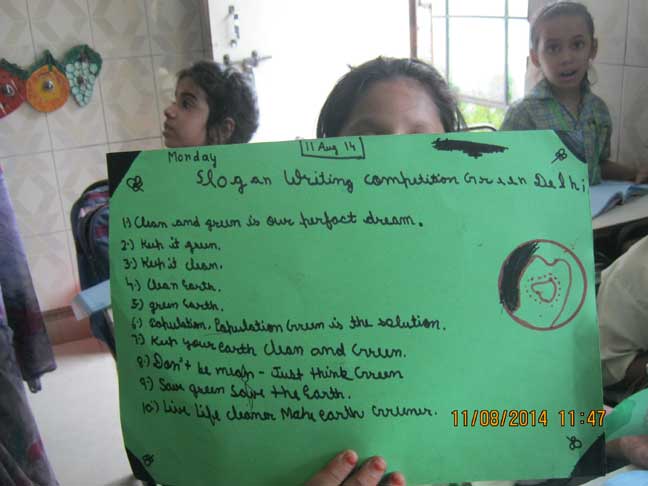 11 Aug 14
Monday
Slogan Writing compitition Green Delhi
1) Clean and green is our perfact dream.
2.) Keep it green.
3.) Keep it clean.
4.) Clean Earth.
5) green Earth.
6.) Population, Population Green is the solution.
7.) Keep your Earth Clean and Green.
8.) Don't be mean - Just think Green
9.) Save green Save the Earth.
10.) Live Life cleaner Make earth Greener.
11/08/2014 11:47